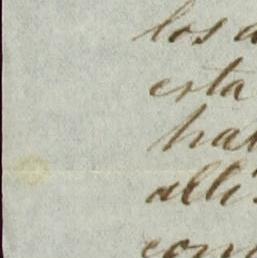 los a
esta
hab
alli
con